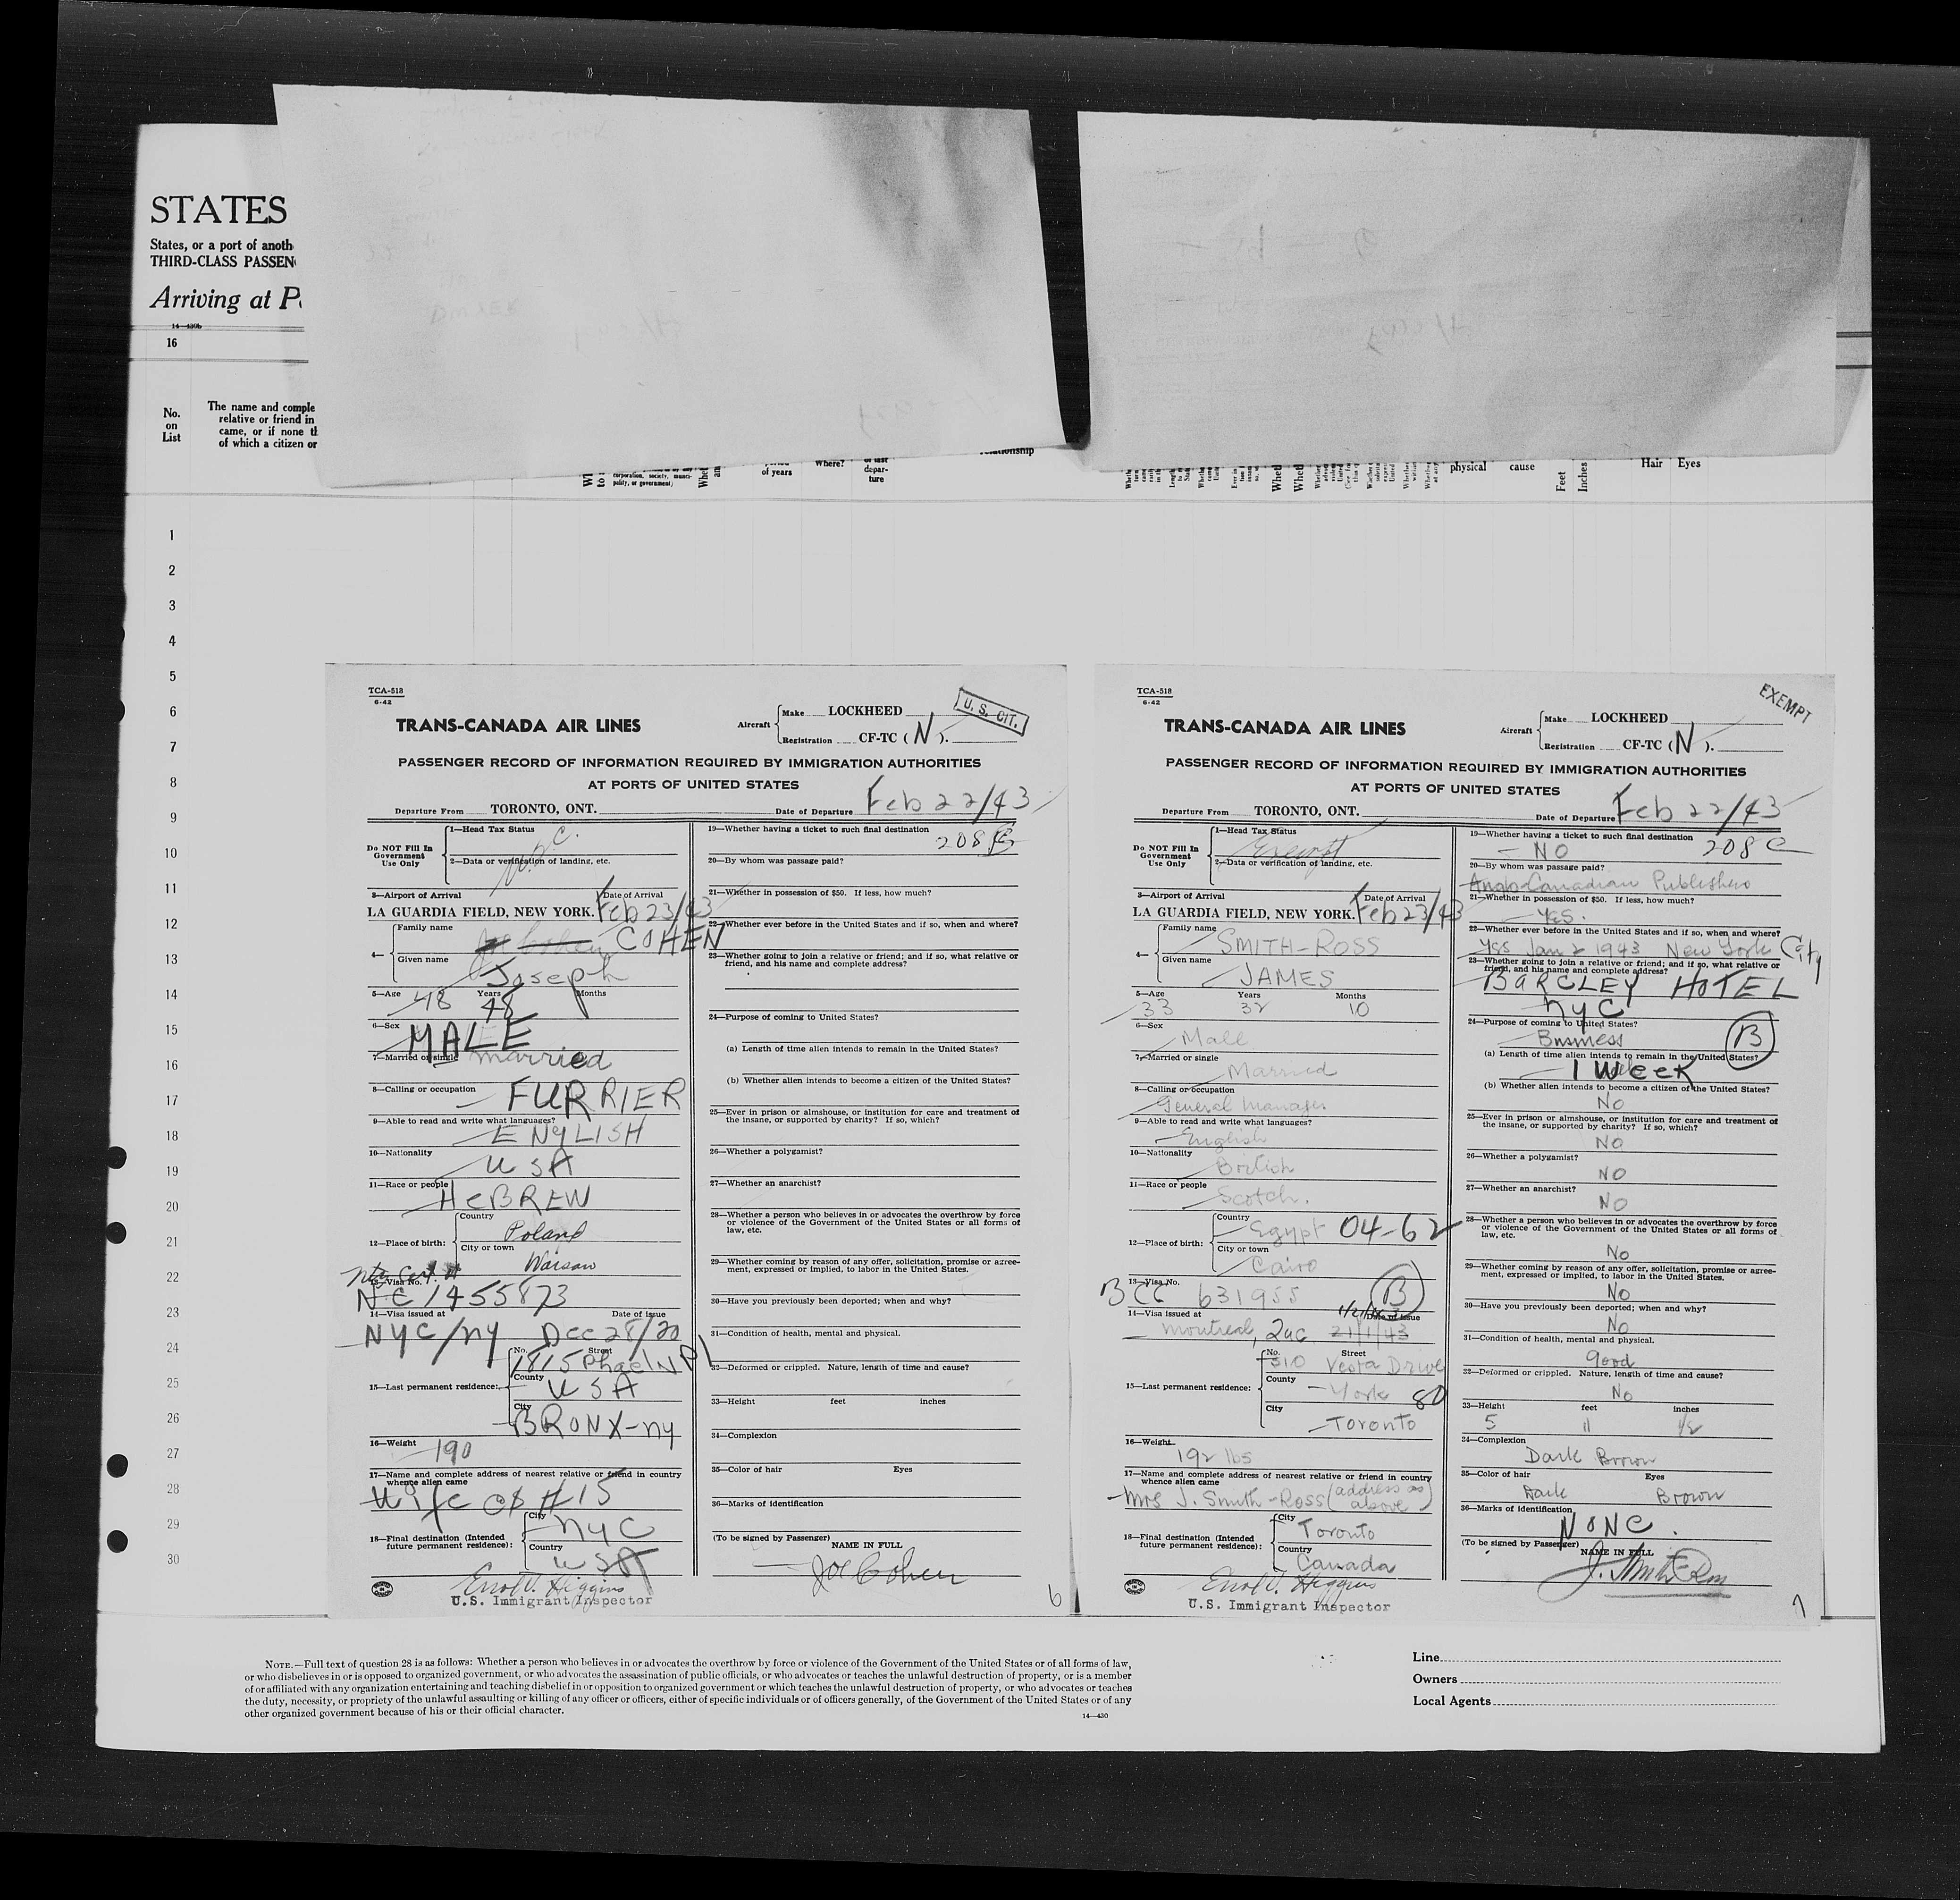 STATES
States, or a port of anoth
THIRD-CLASS PASSEN
Arriving at P
14—430b
16
No.
on
List
The name and comple
relative or friend in
came, or if none th
of which a citizen or
corporation, society, munici-
pality, or government)
of years
Where?
depar-
ture
physical
cause
Feet
Inches
Hair
Eyes
1
2
3
4
5
6
7
8
9
10
11
12
13
14
15
16
17
18
19
20
21
22
23
24
25
26
27
28
29
30
TCA-518
6-42
TRANS-CANADA AIR LINES
Aircraft
Make LOCKHEED
Registration CF-TC ( N ).
U. S. CIT.
PASSENGER RECORD OF INFORMATION REQUIRED BY IMMIGRATION AUTHORITIES
AT PORTS OF UNITED STATES
Departure From TORONTO, ONT.
Date of Departure Feb 22/43
Do NOT Fill In
Government
Use Only
1—Head Tax Status
2—Data or verification of landing, etc.
3—Airport of Arrival
Date of Arrival
LA GUARDIA FIELD, NEW YORK. Feb 23/43
4—
Family name
COHEN
Given name
Joseph
5—Age 48 Years 48 Months
6—Sex
MALE
7—Married or single married
8—Calling or occupation
FURRIER
9—Able to read and write what languages?
ENGLISH
10—Nationality
USA
11—Race or people
HEBREW
12—Place of birth:
Country
Poland
City or town
Warsaw
13—Visa No.
NC 1455873
14—Visa issued at
Date of issue
NYC/NY Dec 28/20
15—Last permanent residence:
No. Street
1815
County
USA
City
BRONX-NY
16—Weight
190
17—Name and complete address of nearest relative or friend in country
whence alien came
Wife
#15
18—Final destination (Intended
future permanent residence):
City
NYC
Country
USA
Errol V. Higgins
U.S. Immigrant Inspector
19—Whether having a ticket to such final destination
208 B
20—By whom was passage paid?
21—Whether in possession of $50. If less, how much?
22—Whether ever before in the United States and if so, when and where?
23—Whether going to join a relative or friend; and if so, what relative or
friend, and his name and complete address?
24—Purpose of coming to United States?
(a) Length of time alien intends to remain in the United States?
(b) Whether alien intends to become a citizen of the United States?
25—Ever in prison or almshouse, or institution for care and treatment of
the insane, or supported by charity? If so, which?
26—Whether a polygamist?
27—Whether an anarchist?
28—Whether a person who believes in or advocates the overthrow by force
or violence of the Government of the United States or all forms of
law, etc.
29—Whether coming by reason of any offer, solicitation, promise or agree-
ment, expressed or implied, to labor in the United States.
30—Have you previously been deported; when and why?
31—Condition of health, mental and physical.
32—Deformed or crippled. Nature, length of time and cause?
33—Height feet inches
34—Complexion
35—Color of hair Eyes
36—Marks of identification
(To be signed by Passenger)
NAME IN FULL
Joe Cohen
6
TCA-518
6-42
TRANS-CANADA AIR LINES
Aircraft
Make LOCKHEED
Registration CF-TC ( N ).
EXEMPT
PASSENGER RECORD OF INFORMATION REQUIRED BY IMMIGRATION AUTHORITIES
AT PORTS OF UNITED STATES
Departure From TORONTO, ONT.
Date of Departure Feb 22/43
Do NOT Fill In
Government
Use Only
1—Head Tax Status
Exempt
2—Data or verification of landing, etc.
3—Airport of Arrival
Date of Arrival
LA GUARDIA FIELD, NEW YORK. Feb 23/43
4—
Family name
SMITH-ROSS
Given name
JAMES
5—Age Years Months
33 32 10
6—Sex
Male
7—Married or single
Married
8—Calling or occupation
General Manager
9—Able to read and write what languages?
English
10—Nationality
British
11—Race or people
Scotch.
12—Place of birth:
Country
Egypt 04-62
City or town
Cairo
13—Visa No.
BCC 631955 B
14—Visa issued at
Date of issue
Montreal, Quc 21/1/43
15—Last permanent residence:
No. Street
310 Vesta Drive
County
York 80
City
Toronto
16—Weight
192 lbs
17—Name and complete address of nearest relative or friend in country
whence alien came
Mrs J. Smith-Ross (address as above)
18—Final destination (Intended
future permanent residence):
City
Toronto
Country
Canada
Errol V. Higgins
U.S. Immigrant Inspector
19—Whether having a ticket to such final destination
NO 208 C
20—By whom was passage paid?
Anglo-Canadian Publishers
21—Whether in possession of $50. If less, how much?
Yes.
22—Whether ever before in the United States and if so, when and where?
Yss Jan 2 1943 New York City
23—Whether going to join a relative or friend; and if so, what relative or
friend, and his name and complete address?
BARCLEY HOTEL
NYC
24—Purpose of coming to United States?
Business B
(a) Length of time alien intends to remain in the United States?
1 Week
(b) Whether alien intends to become a citizen of the United States?
No
25—Ever in prison or almshouse, or institution for care and treatment of
the insane, or supported by charity? If so, which?
NO
26—Whether a polygamist?
NO
27—Whether an anarchist?
NO
28—Whether a person who believes in or advocates the overthrow by force
or violence of the Government of the United States or all forms of
law, etc.
No
29—Whether coming by reason of any offer, solicitation, promise or agree-
ment, expressed or implied, to labor in the United States.
No
30—Have you previously been deported; when and why?
No
31—Condition of health, mental and physical.
Good
32—Deformed or crippled. Nature, length of time and cause?
No
33—Height feet inches
5 11 1/2
34—Complexion
Dark Brown
35—Color of hair Eyes
Dark Brown
36—Marks of identification
NONE.
(To be signed by Passenger)
NAME IN FULL
J. Smith Ross
7
NOTE.—Full text of question 28 is as follows: Whether a person who believes in or advocates the overthrow by force or violence of the Government of the United States or of all forms of law,
or who disbelieves in or is opposed to organized government, or who advocates the assassination of public officials, or who advocates or teaches the unlawful destruction of property, or is a member
of or affiliated with any organization entertaining and teaching disbelief in or opposition to organized government or which teaches the unlawful destruction of property, or who advocates or teaches
the duty, necessity, or propriety of the unlawful assaulting or killing of any officer or officers, either of specific individuals or of officers generally, of the Government of the United States or of any
other organized government because of his or their official character.
14—430
Line
Owners
Local Agents